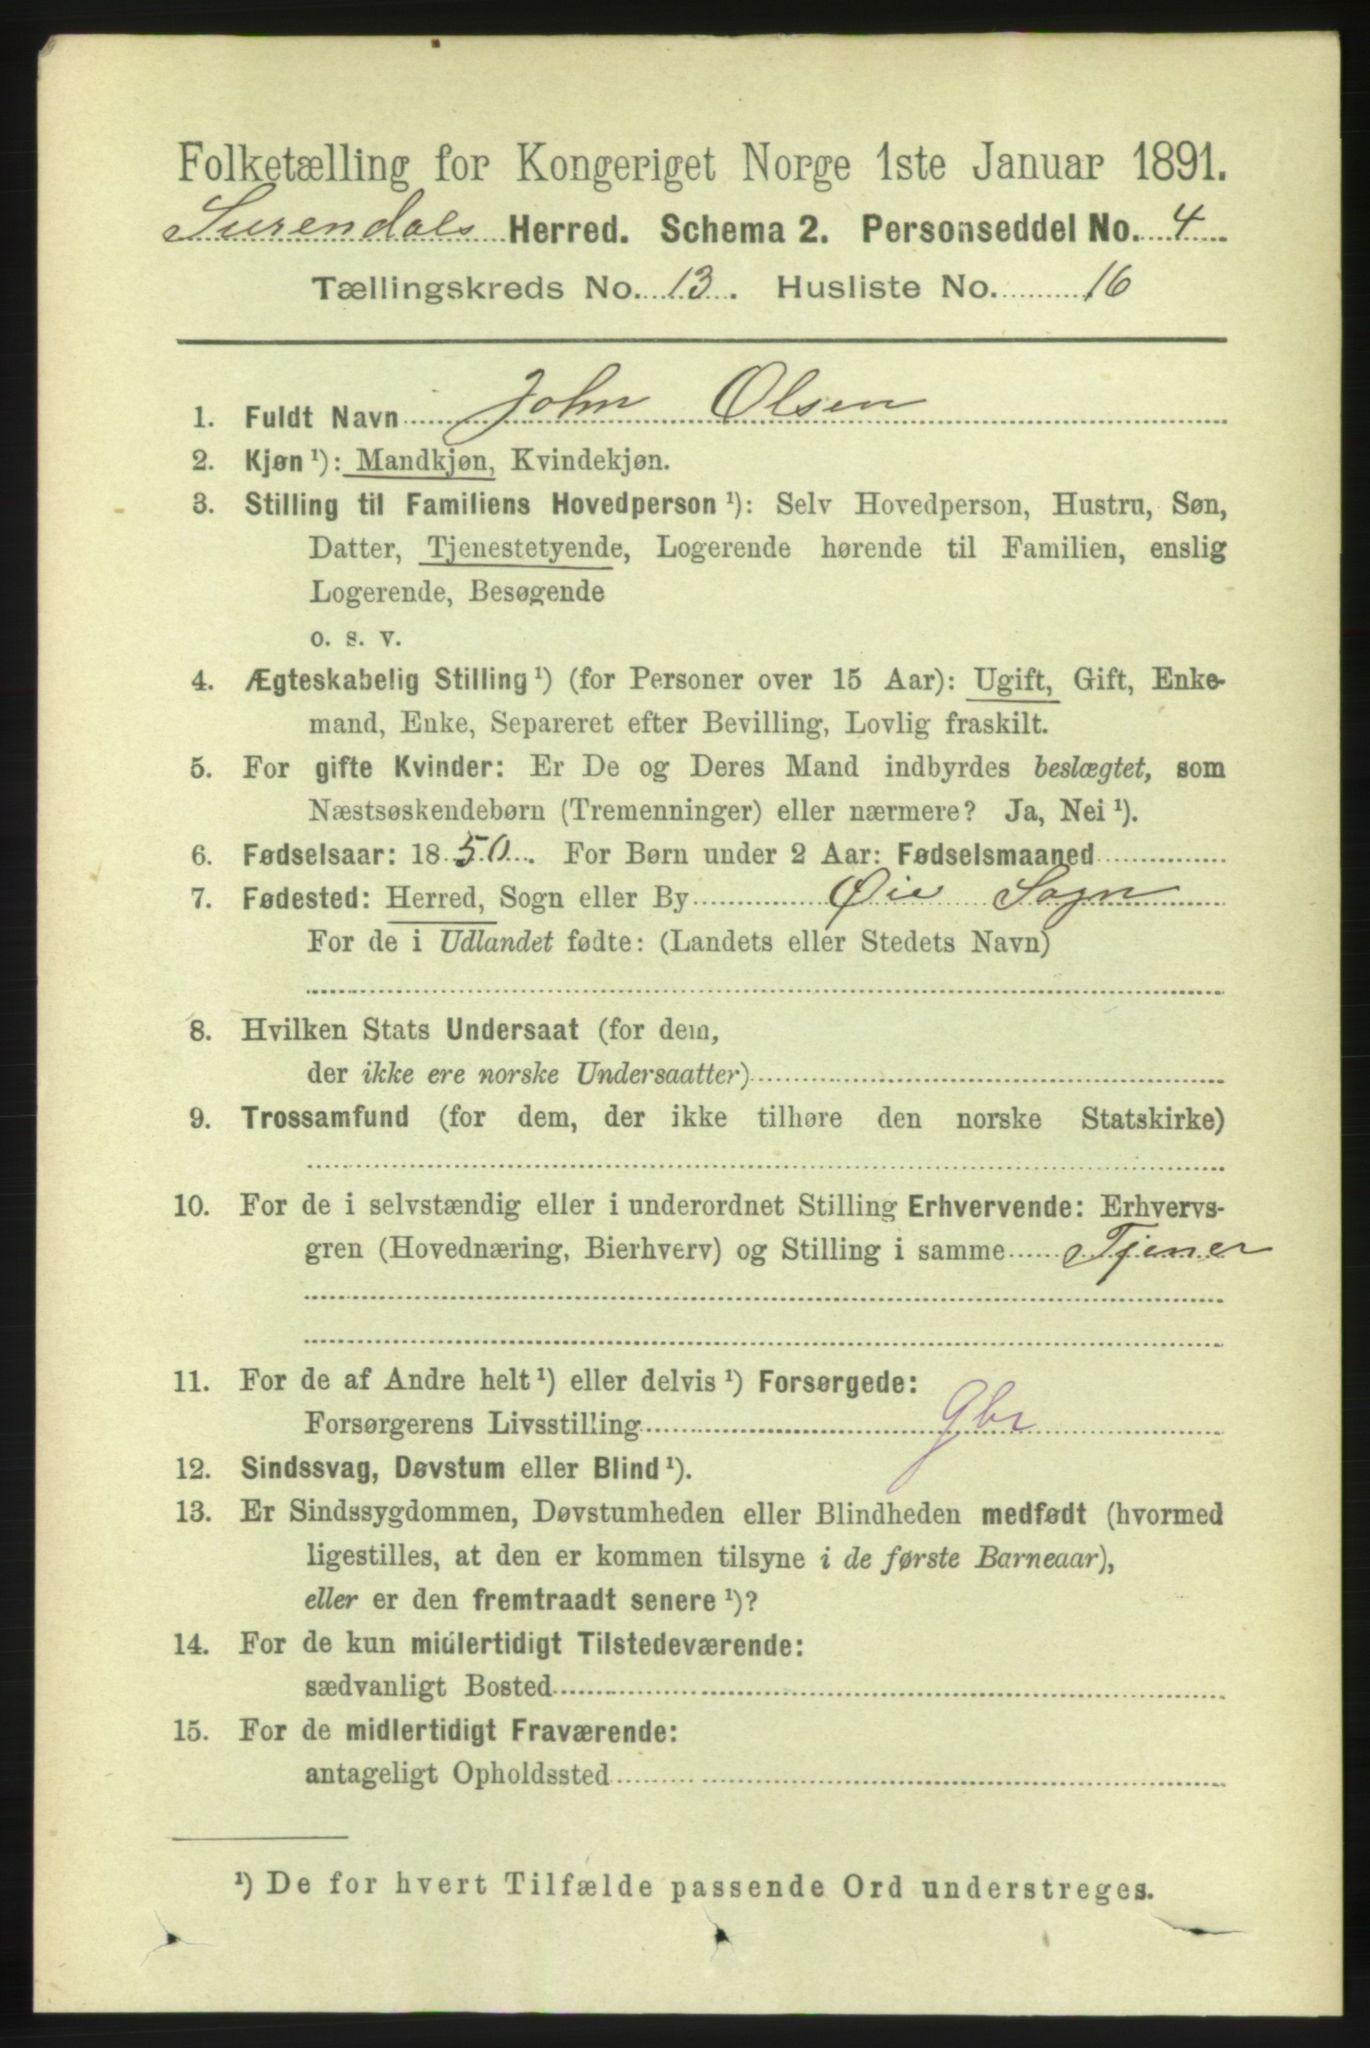 Folketælling for Kongeriget Norge 1ste Januar 1891.
Surendals Herred. Schema 2. Personseddel No. 4
Tællingskreds No. 13. Husliste No. 16
1. Fuldt Navn John Olsen
2. Kjøn ¹): Mandkjøn, Kvindekjøn.
3. Stilling til Familiens Hovedperson ¹): Selv Hovedperson, Hustru, Søn,
Datter, Tjenestetyende, Logerende hørende til Familien, enslig
Logerende, Besøgende
o. s. v.
4. Ægteskabelig Stilling ¹) (for Personer over 15 Aar): Ugift, Gift, Enke-
mand, Enke, Separeret efter Bevilling, Lovlig fraskilt.
5. For gifte Kvinder: Er De og Deres Mand indbyrdes beslægtet, som
Næstsøskendebørn (Tremenninger) eller nærmere? Ja, Nei ¹).
6. Fødselsaar: 1850. For Børn under 2 Aar: Fødselsmaaned
7. Fødested: Herred, Sogn eller By Øie Sogn
For de i Udlandet fødte: (Landets eller Stedets Navn)
8. Hvilken Stats Undersaat (for dem,
der ikke ere norske Undersaatter)
9. Trossamfund (for dem, der ikke tilhøre den norske Statskirke)
10. For de i selvstændig eller i underordnet Stilling Erhvervende: Erhvervs-
gren (Hovednæring, Bierhverv) og Stilling i samme Tjener
11. For de af Andre helt ¹) eller delvis ¹) Forsørgede:
Forsørgerens Livsstilling Gbr
12. Sindssvag, Døvstum eller Blind ¹).
13. Er Sindssygdommen, Døvstumheden eller Blindheden medfødt (hvormed
ligestilles, at den er kommen tilsyne i de første Barneaar),
eller er den fremtraadt senere ¹)?
14. For de kun midlertidigt Tilstedeværende:
sædvanligt Bosted
15. For de midlertidigt Fraværende:
antageligt Opholdssted
¹) De for hvert Tilfælde passende Ord understreges.